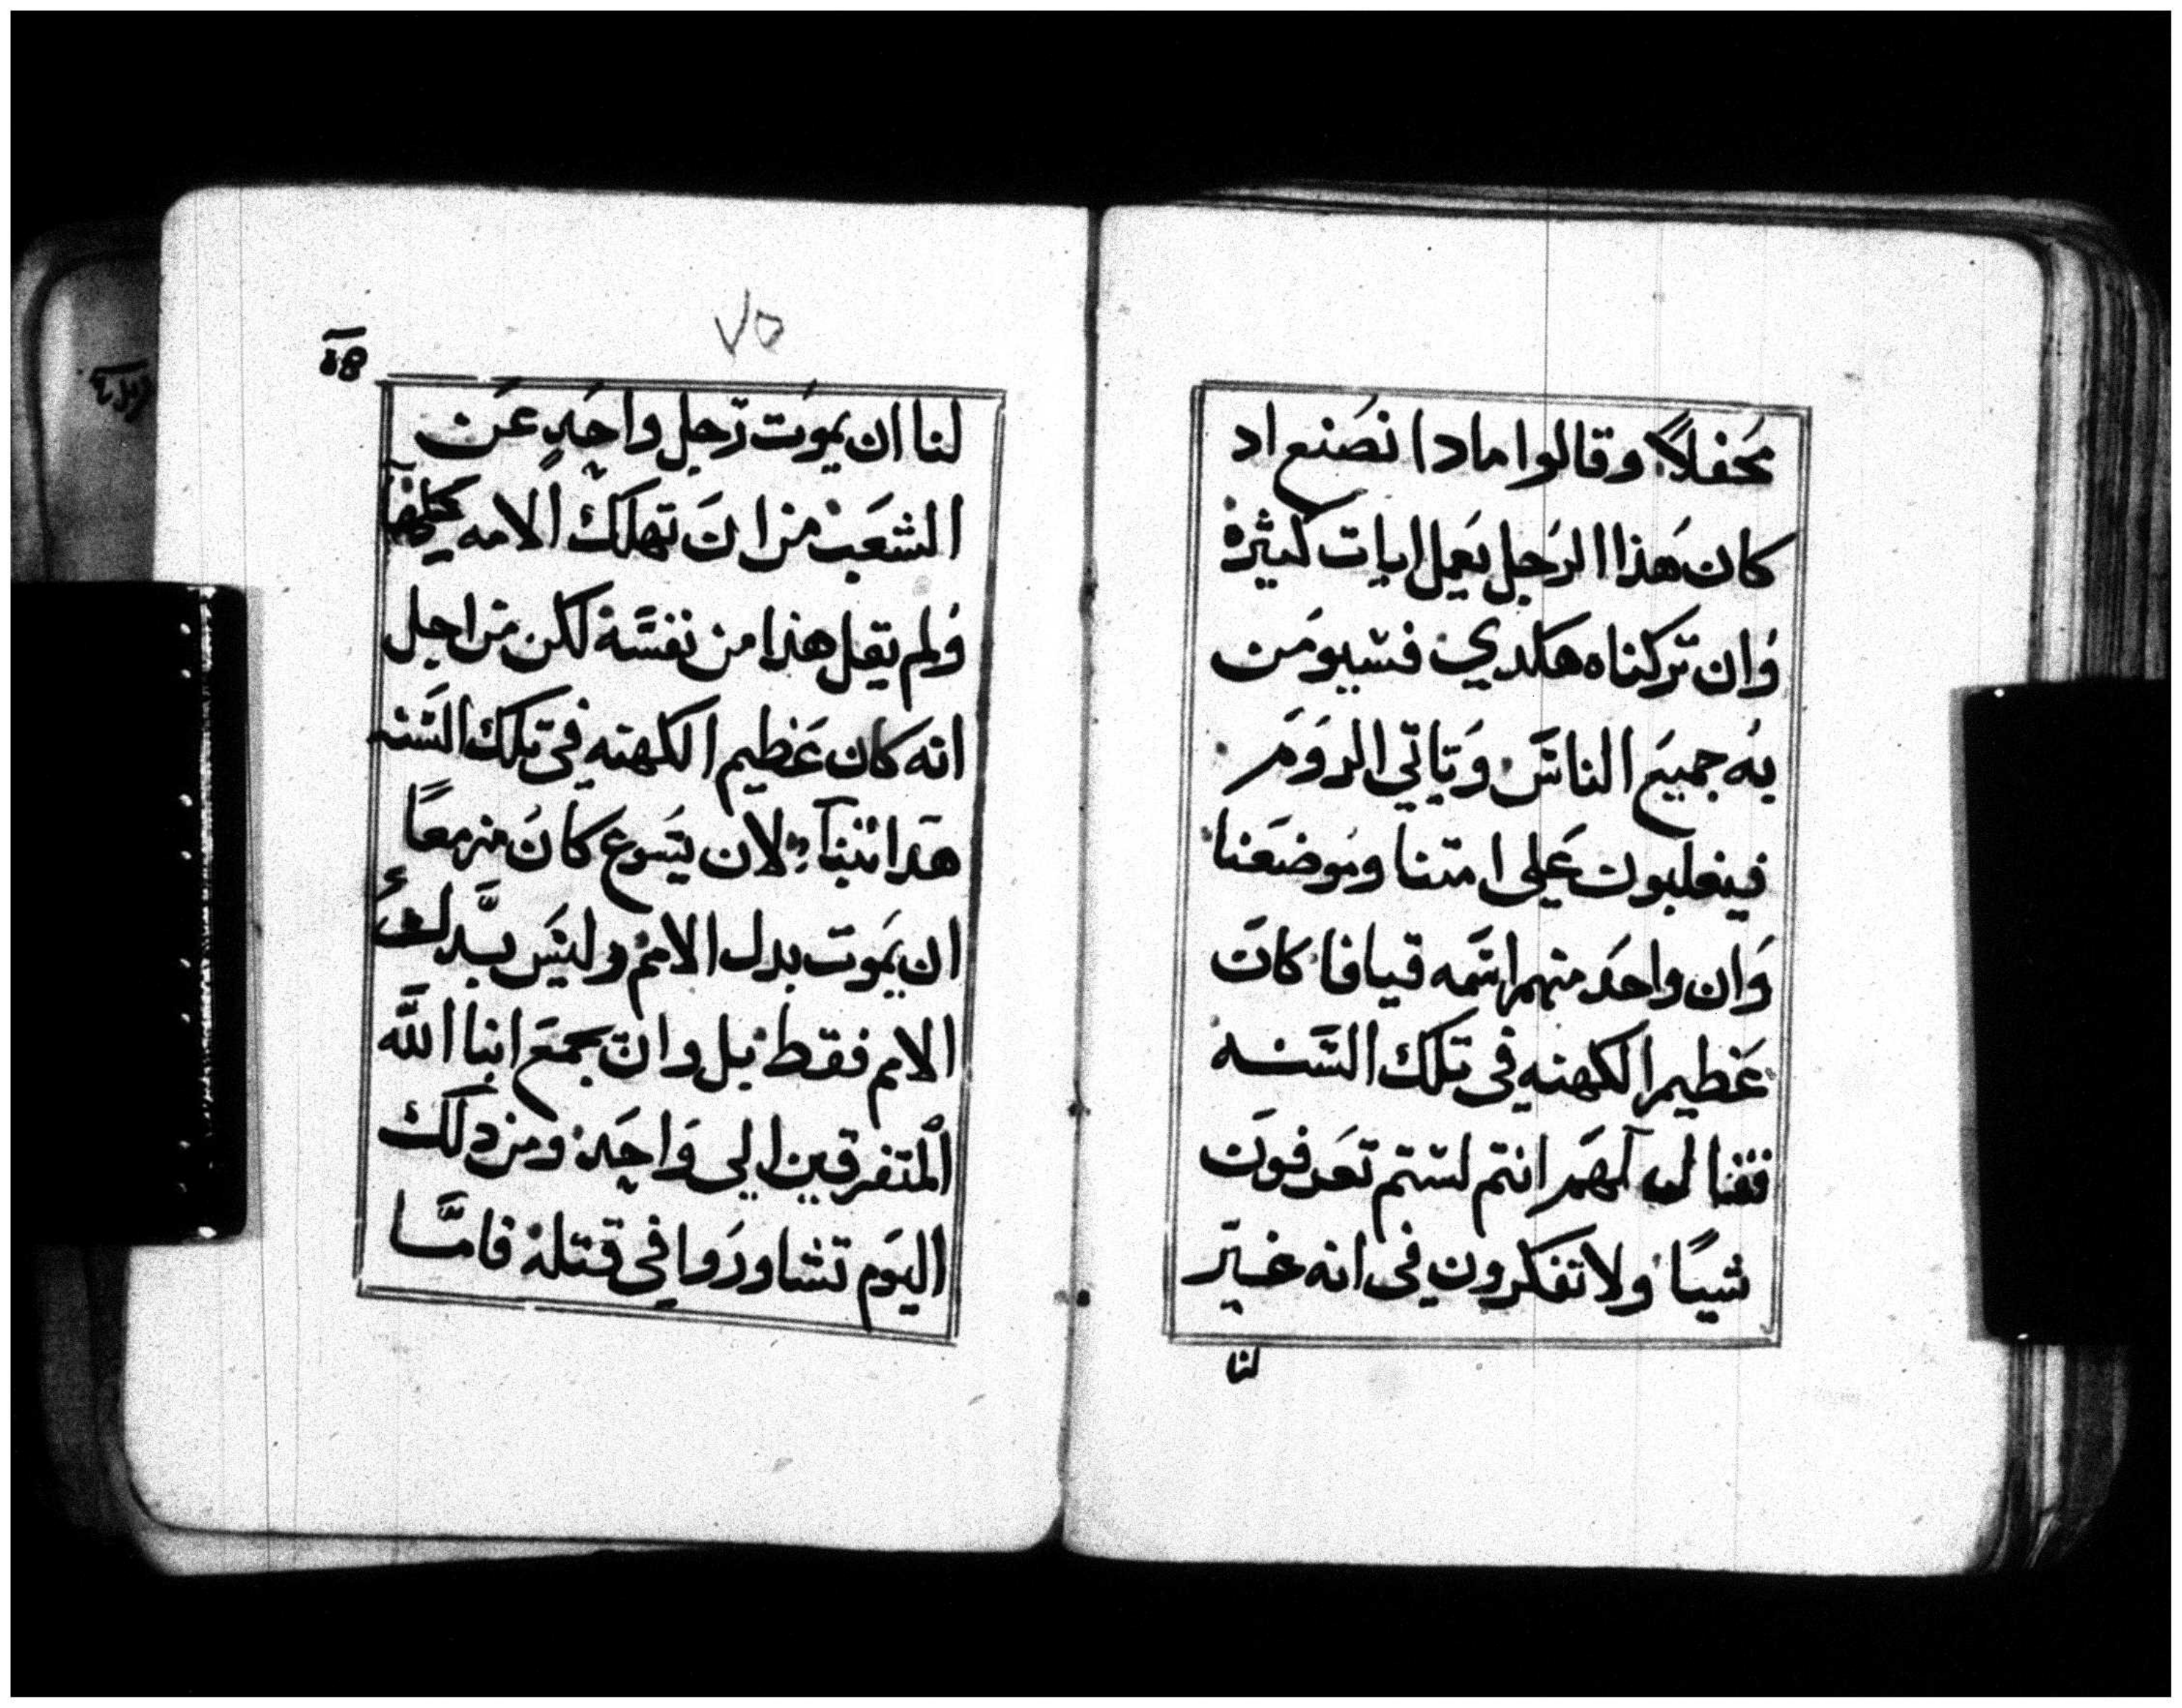 محفلاً وقالوا مادا نصنع اد
كان هذا الرجل يعمل ايات كثيره
وان تركناه هكدي فسيومن
به جميع الناس وياتي الروم
فيغلبون على امتنا وموضعنا
وان واحد منهم اسمه قيافا كان
عظيم الكهنه في تلك السنه
فقال لهم انتم لستم تعرفون
شيًا ولا تفكرون في انه خير
لنا
٧٥
لنا ان يموت رجل واحد عن
الشعب من ان تهلك الامه كلها
ولم يقل هذا من نفسه لكن من اجل
انه كان عظيم الكهنه في تلك السنه
هدا تنبا لان يسوع كان مزمعًا
ان يموت بدل الامم وليس بدل
الامم فقط بل وان يجمع ابنا الله
المتفرقين الي واحد ومن دلك
اليوم تشاوروا في قتله فاما